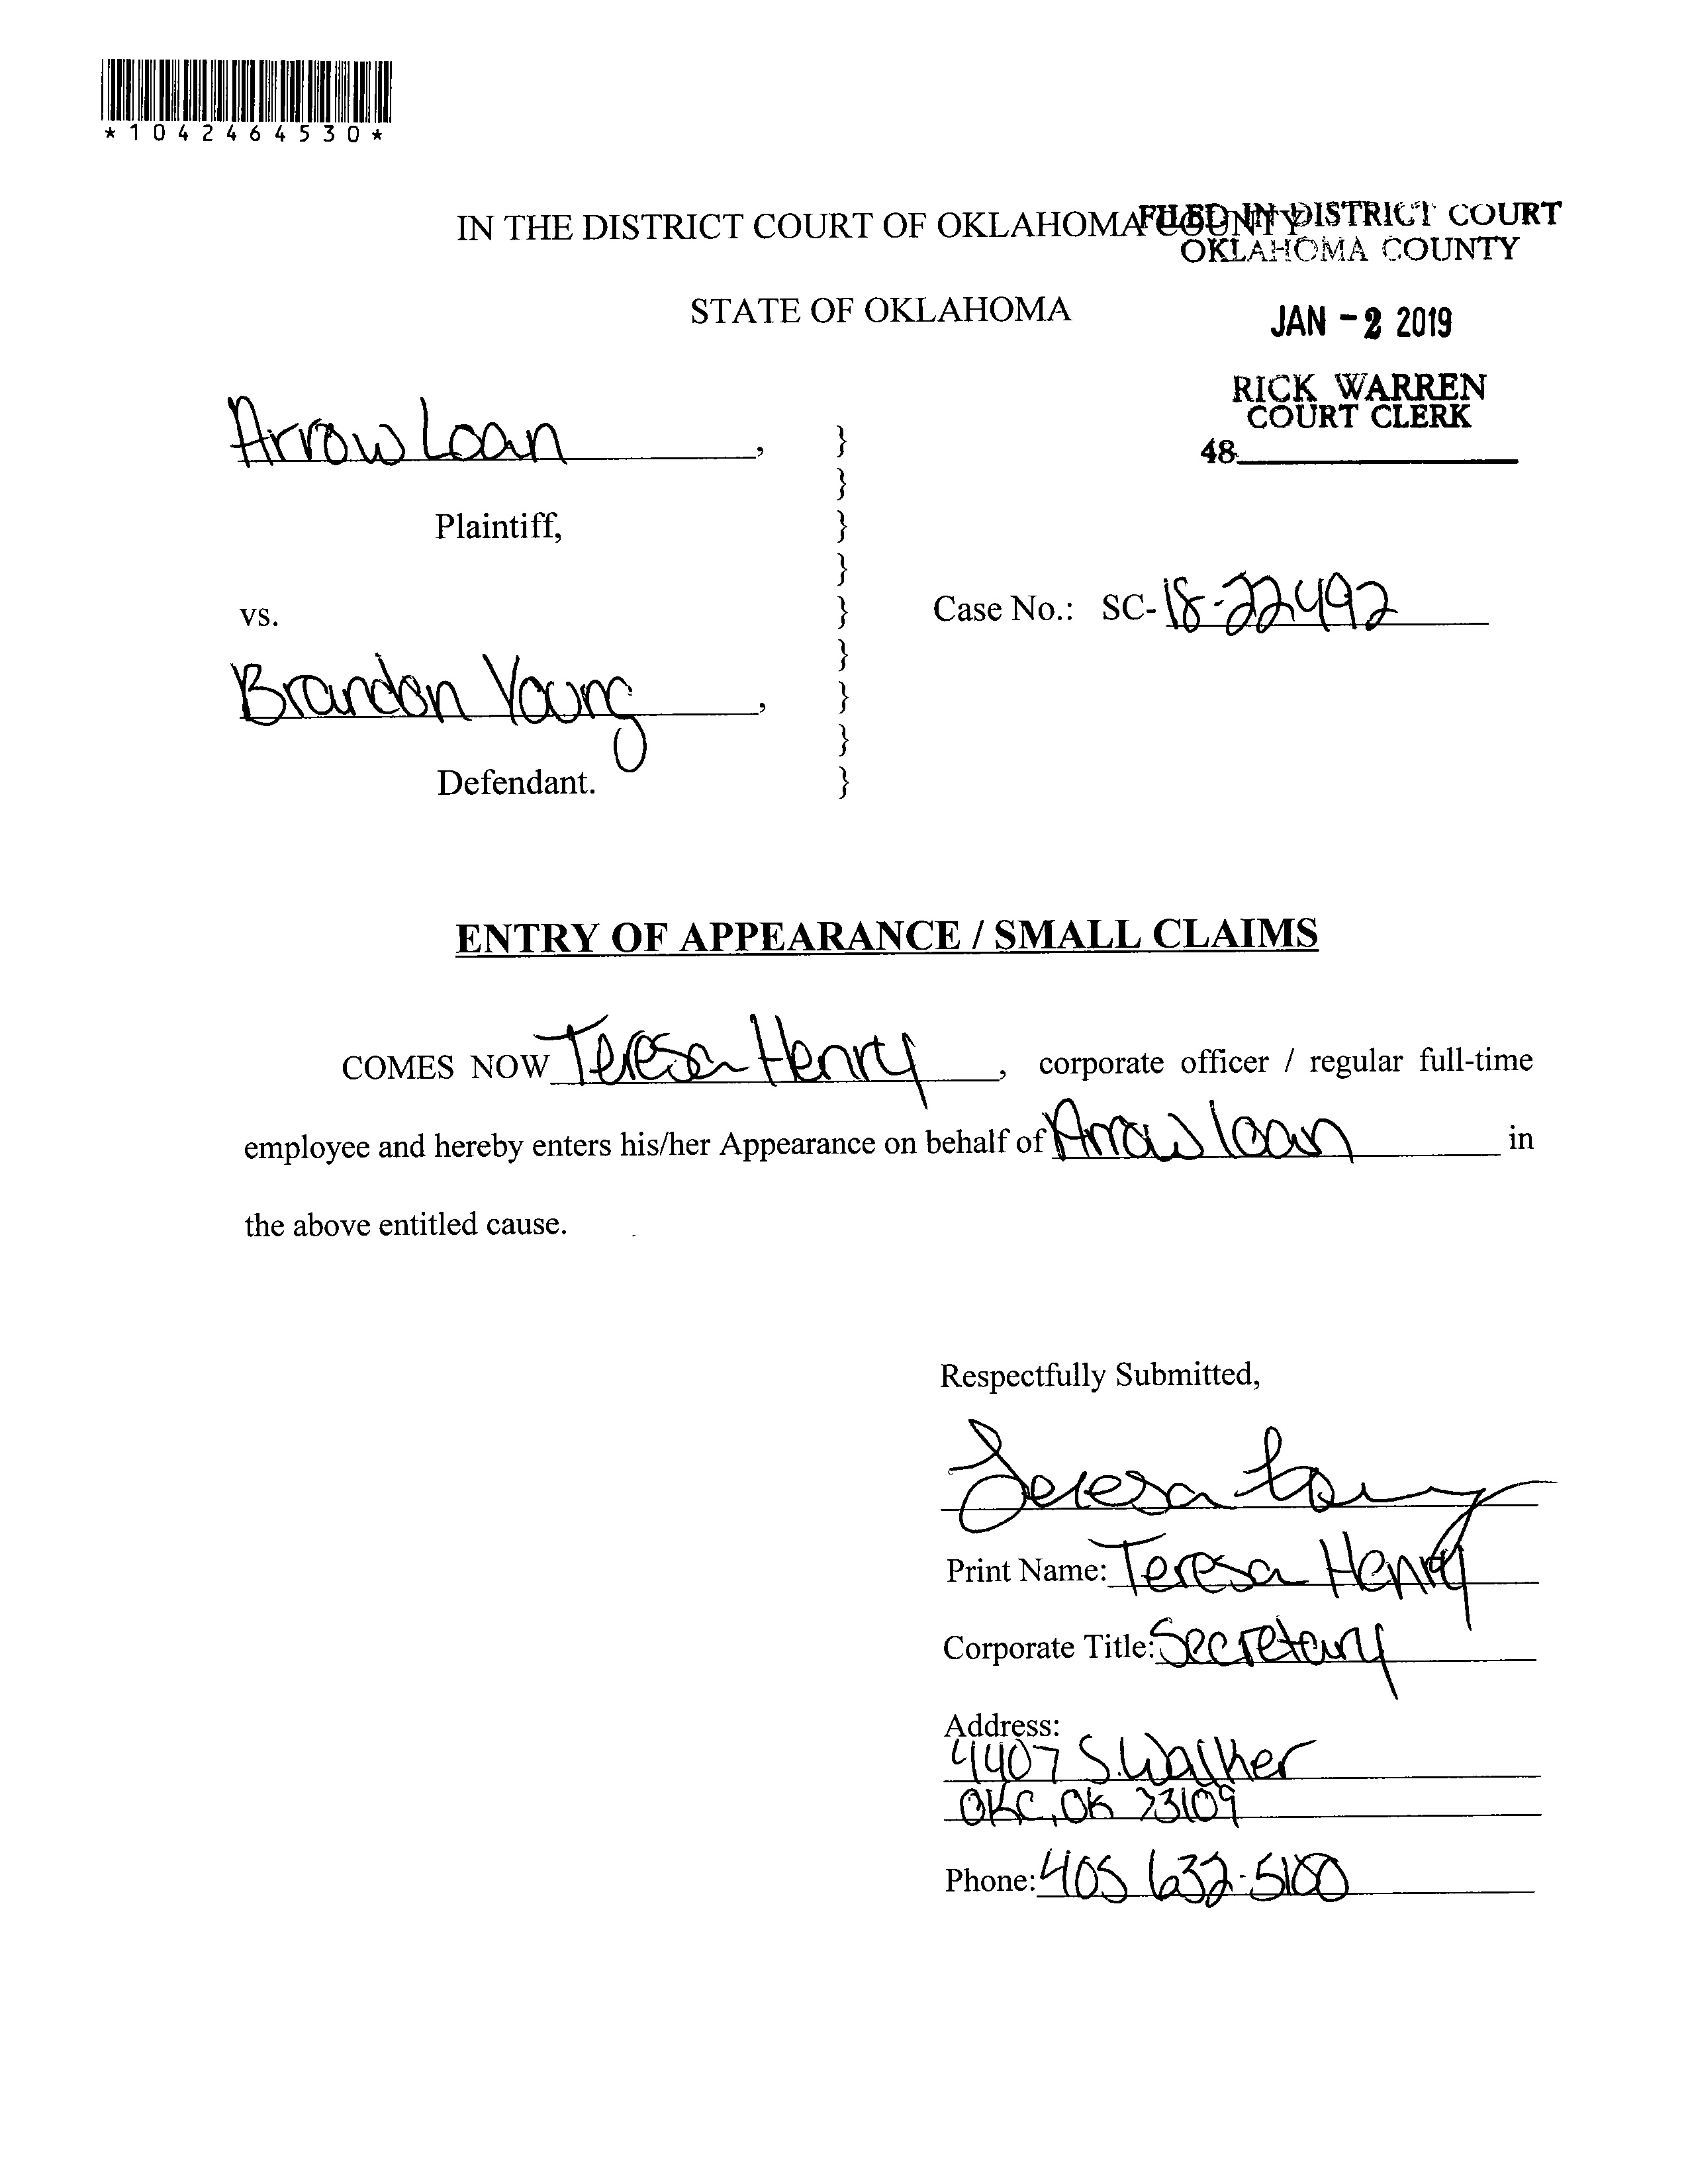 *1042464530*
IN THE DISTRICT COURT OF OKLAHOMA COUNTY
FILED IN DISTRICT COURT
OKLAHOMA COUNTY
STATE OF OKLAHOMA
JAN - 2 2019
RICK WARREN
COURT CLERK
48
Arrow Loan,
}
}
Plaintiff, }
}
vs. } Case No.: SC-18-22492
}
Brandon Young, }
}
Defendant. }
ENTRY OF APPEARANCE / SMALL CLAIMS
COMES NOW Teresa Henry, corporate officer / regular full-time
employee and hereby enters his/her Appearance on behalf of Arrow loan in
the above entitled cause.
Respectfully Submitted,
Teresa Henry
Print Name: Teresa Henry
Corporate Title: Secretary
Address:
4407 S. Walker
OKC, OK 73109
Phone: 405 632-5100